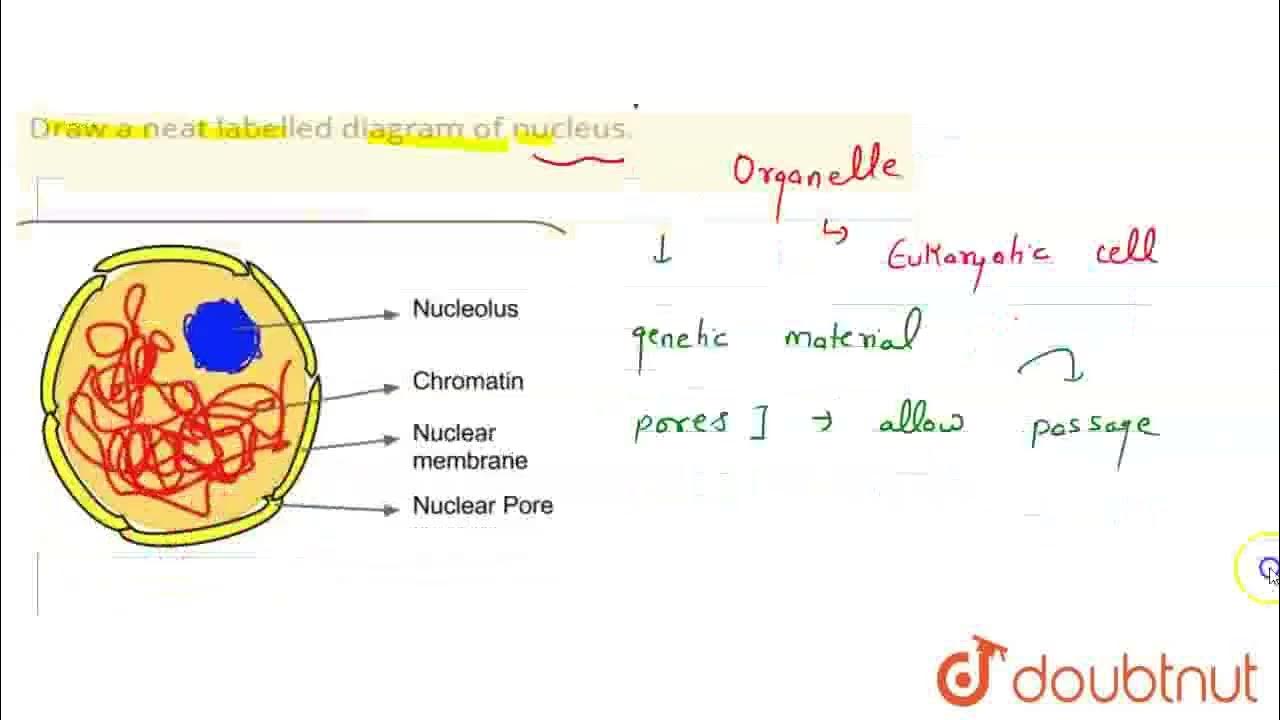 Draw a neat labelled diagram of nucleus.
Organelle
↳ Eukaryotic cell
↓
genetic material
pores ] → allow passage
Nucleolus
Chromatin
Nuclear
membrane
Nuclear Pore
doubtnut